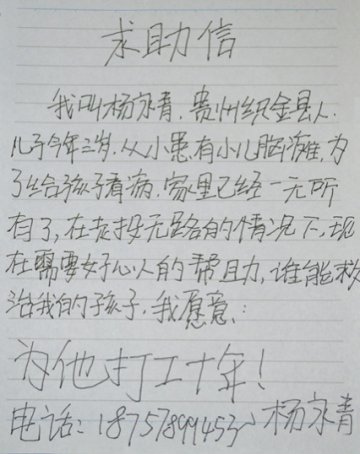 求助信
我叫杨家青，贵州织金县人，
儿子今年三岁，从小患有小儿脑瘫，为
了给孩子看病，家里已经一无所
有了，在走投无路的情况下，现
在需要好心人的帮助，谁能救
治我的孩子，我愿意：
为他打工十年！
电话：18757899453 杨家青